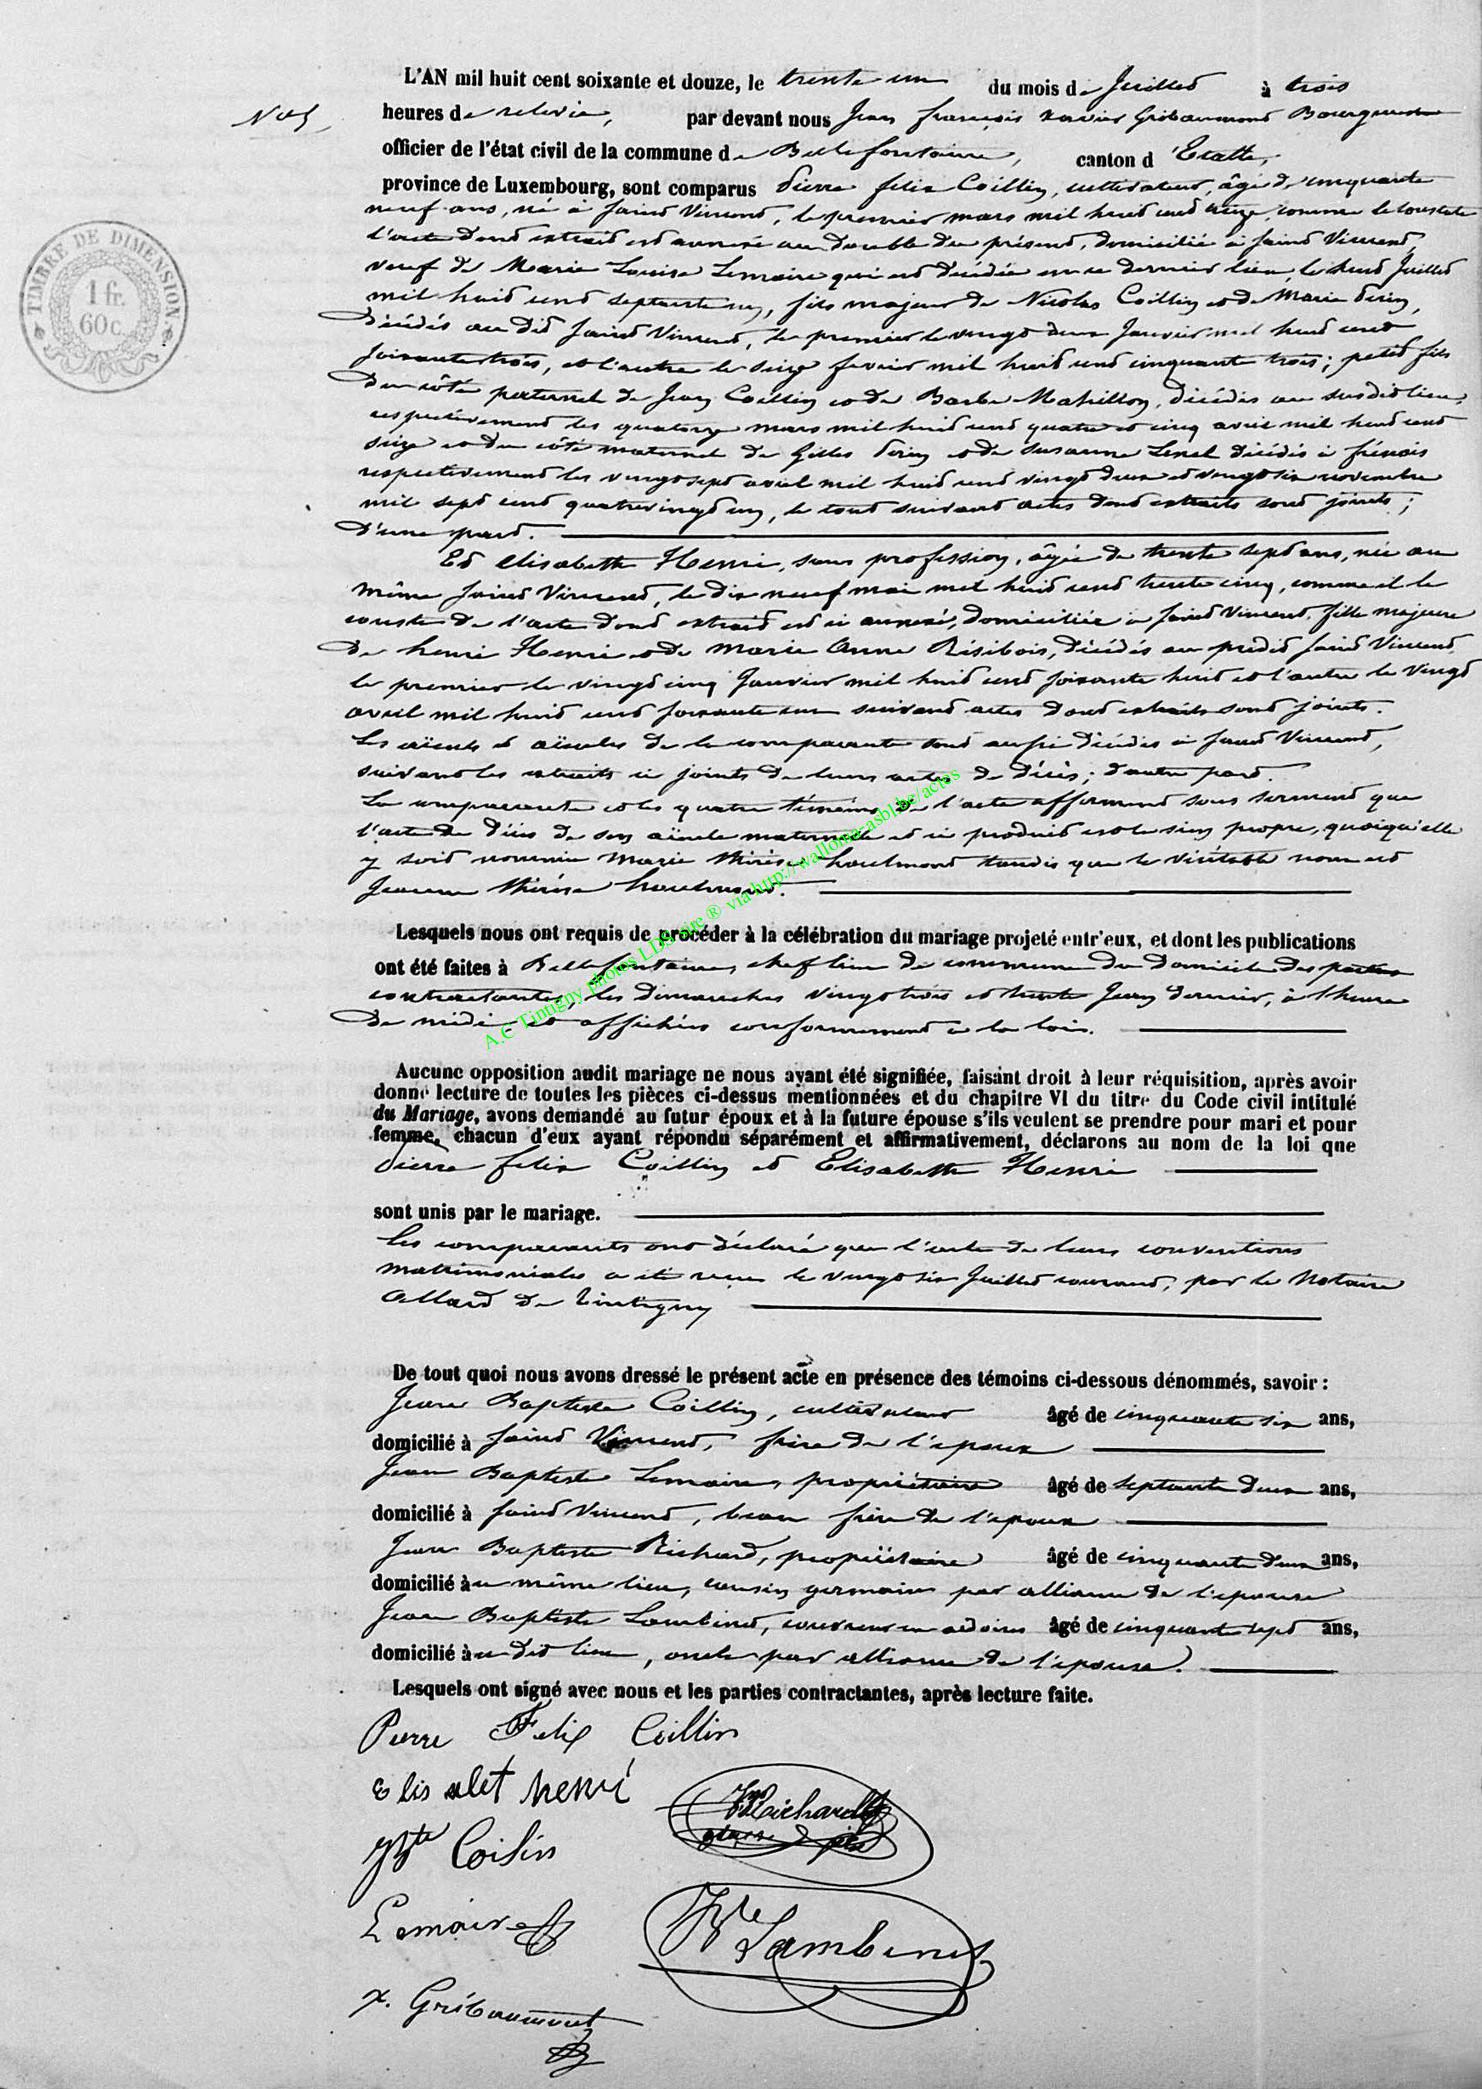 L'AN mil huit cent soixante et douze, le trente un du mois de Juillet à trois
N° 5,
heures de relevée, par devant nous Jean françois xavier Gribaumont Bourgmestre
officier de l'état civil de la commune de Bellefontaine, canton d'Etalle,
province de Luxembourg, sont comparus Pierre felix Coillin, cultivateur, âgé de cinquante
neuf ans, né à Saint Vincent, le premier mars mil huit cent treize, comme le constate
l'acte dont extrait est annexé au double du présent, domicilié à Saint Vincent,
veuf de Marie Louise Lemaire qui est décédée en ce dernier lieu le huit Juillet
mil huit cent septante un, fils majeur de Nicolas Coillin et de Marie Perin,
décédés au dit Saint Vincent, le premier le vingt deux Janvier mil huit cent
soixante trois, et l'autre le seize fevrier mil huit cent cinquante trois; petit fils
du côté paternel de Jean Coillin et de Barbe Mahillon, décédés au susdit lieu,
respectivement les quatorze mars mil huit cent quatre et cinq avril mil huit cent
seize et du côté maternel de Gilles Perin et de Susanne Lenel décédés à frénois
respectivement les vingt sept avril mil huit cent vingt deux et vingt six novembre
mil sept cent quatrevingt un, le tout suivant actes dont extraits sont joints;
D'une part.
Et elisabeth Henri, sans profession, âgée de trente sept ans, née au
même Saint Vincent, le dix neuf mai mil huit cent trente cinq, comme il le
conste de l'acte dont extrait est ci annexé, domiciliée à Saint Vincent, fille majeure
de henri Henri et de Marie Anne Risibois, décédés au predit Saint Vincent,
le premier le vingt cinq Janvier mil huit cent soixante huit et l'autre le vingt
avril mil huit cent soixante un suivant actes dont extraits sont joints.
Les aïeuls et aïeules de la comparante sont aussi décédés à Saint Vincent,
suivant les extraits ci joints de leurs actes de décès; d'autre part.
La comparante et les quatre témoins de l'acte afferment sous serment que
l'acte de décès de son aïeule maternelle et ci produit est le sien propre, quoiqu'elle
y soit nommée Marie thérèse houlmont tandis que le véritable nom est
Jeanne thérèse houlmont.
Lesquels nous ont requis de procéder à la célébration du mariage projeté entr'eux, et dont les publications
ont été faites à Bellefontaine, chef lieu de commune du domicile des parties
contractantes, les dimanches vingt trois et trente Juin dernier, à l'heure
de midi et affichées conformement à la loi.
Aucune opposition audit mariage ne nous ayant été signifiée, faisant droit à leur réquisition, après avoir
donné lecture de toutes les pièces ci-dessus mentionnées et du chapitre VI du titre du Code civil intitulé
du Mariage, avons demandé au futur époux et à la future épouse s'ils veulent se prendre pour mari et pour
femme, chacun d'eux ayant répondu séparément et affirmativement, déclarons au nom de la loi que
Pierre felix Coillin et Elisabeth Henri
sont unis par le mariage.
Les comparants ont déclaré que l'acte de leurs conventions
matrimoniales a été reçu le vingt six Juillet courant, par le Notaire
Allard de Tintigny
De tout quoi nous avons dressé le présent acte en présence des témoins ci-dessous dénommés, savoir :
Jean Baptiste Coillin, cultivateur âgé de cinquante six ans,
domicilié à Saint Vincent, frère de l'époux
Jean Baptiste Lemaire, propriétaire âgé de septante deux ans,
domicilié à Saint Vincent, beau frère de l'époux
Jean Baptiste Richard, propriétaire âgé de cinquante deux ans,
domicilié au même lieu, cousin germain par alliance de l'épouse
Jean Baptiste Lambinet, couvreur en ardoises âgé de cinquante sept ans,
domicilié au dit lieu, oncle par alliance de l'épouse.
Lesquels ont signé avec nous et les parties contractantes, après lecture faite.
Pierre Felix Coillin
Elis abet henri
JBte Coilin
Richard
Lemaire
JBte Lambinet
x. Gribaumont
TIMBRE DE DIMENSION
1 fr.
60 c.
A.C Tintigny photos LDS site ® via http://wallonia-asbl.be/actes